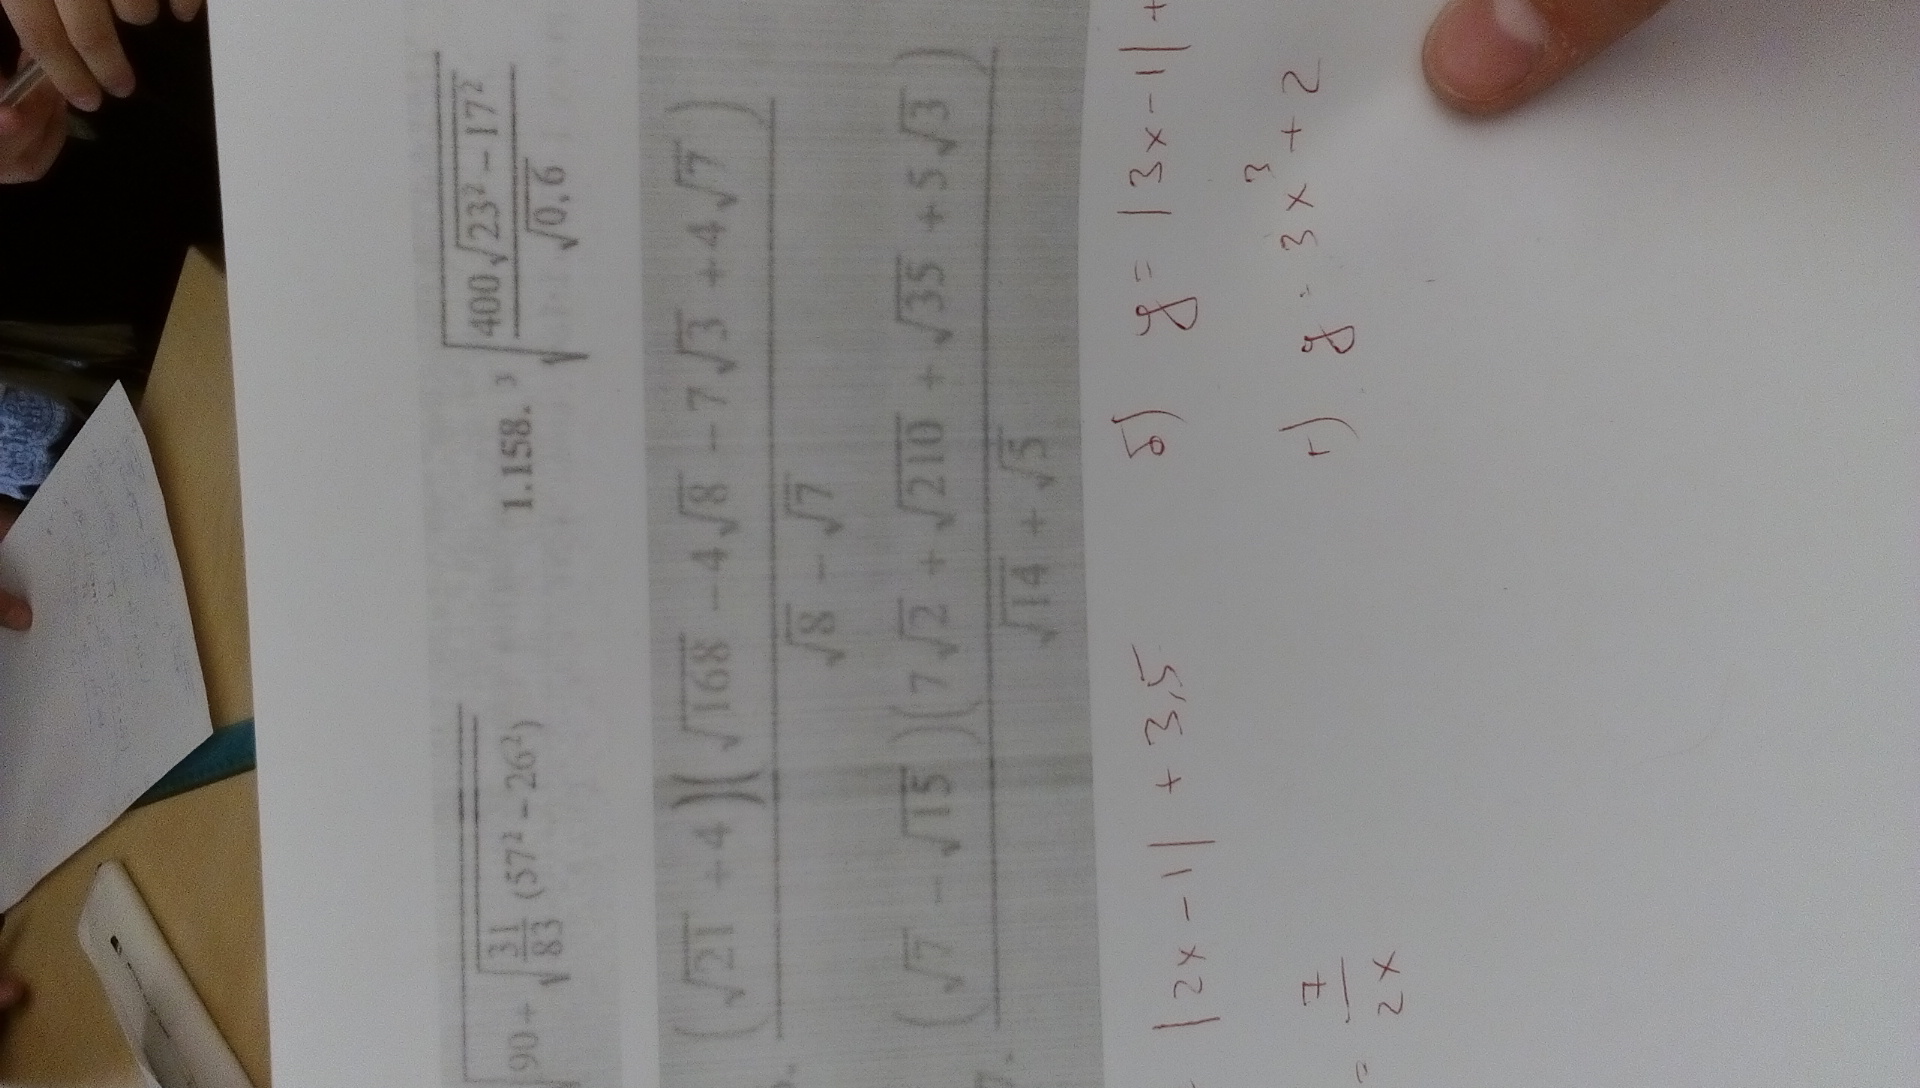 √90 + √(31/83) (57² − 26²)
1.158. ³√((400√(23² − 17²))/√0,6)
((√21 + 4)(√168 − 4√8 − 7√3 + 4√7))/(√8 − √7)
((√7 − √15)(7√2 + √210 + √35 + 5√3))/(√14 + √5)
|2x − 1| + 3,5
б) y = |3x − 1| +
= 7/2x
г) y = 3x³ + 2